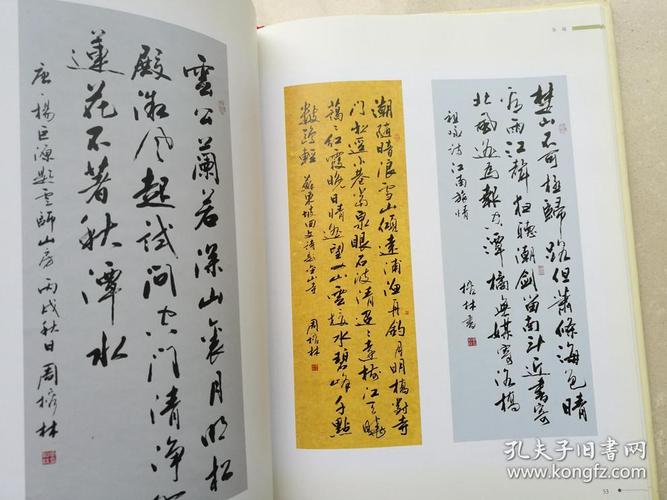 雲公蘭若深山裏月明松
殿微風起試問空門清淨
蓮花不著秋潭水
唐·楊巨源題雲師山房 丙戌秋日周榕林
潮隨暗浪雪山傾遠浦漁舟釣月明橋對寺
門松徑小巷當泉眼石波清迢迢遠樹江天曉
藹藹紅霞晚日晴遙望四山雲接水碧峰千點
數鷗輕 蘇東坡回文詩題金山寺 周榕林
楚山不可極歸路但蕭條海色晴
看雨江聲夜聽潮劍留南斗近書寄
北風遙為報空潭橘無媒寄洛橋
祖咏詩江南旅情 榕林書
53
孔夫子旧书网
www.kongfz.com